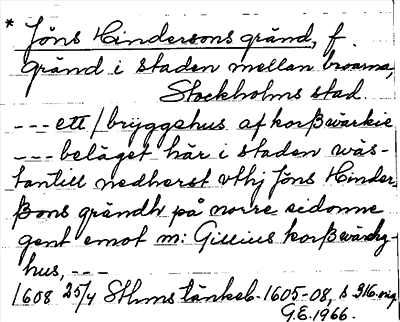 * Jöns Hindersons gränd, f.
Gränd i staden mellan broarna,
Stockholms stad.
--- ett / bryggehus af korßwärkie
--- beläget här i staden wäs-
tantill nedherst vthj Jöns Hinder-
ßons grändh på norre sidonne
gent emot m: Gillius korßwärchz-
hus, ---
1608 25/4 Sthms tänkeb. 1605-08, s 316. orig
G.E. 1966.